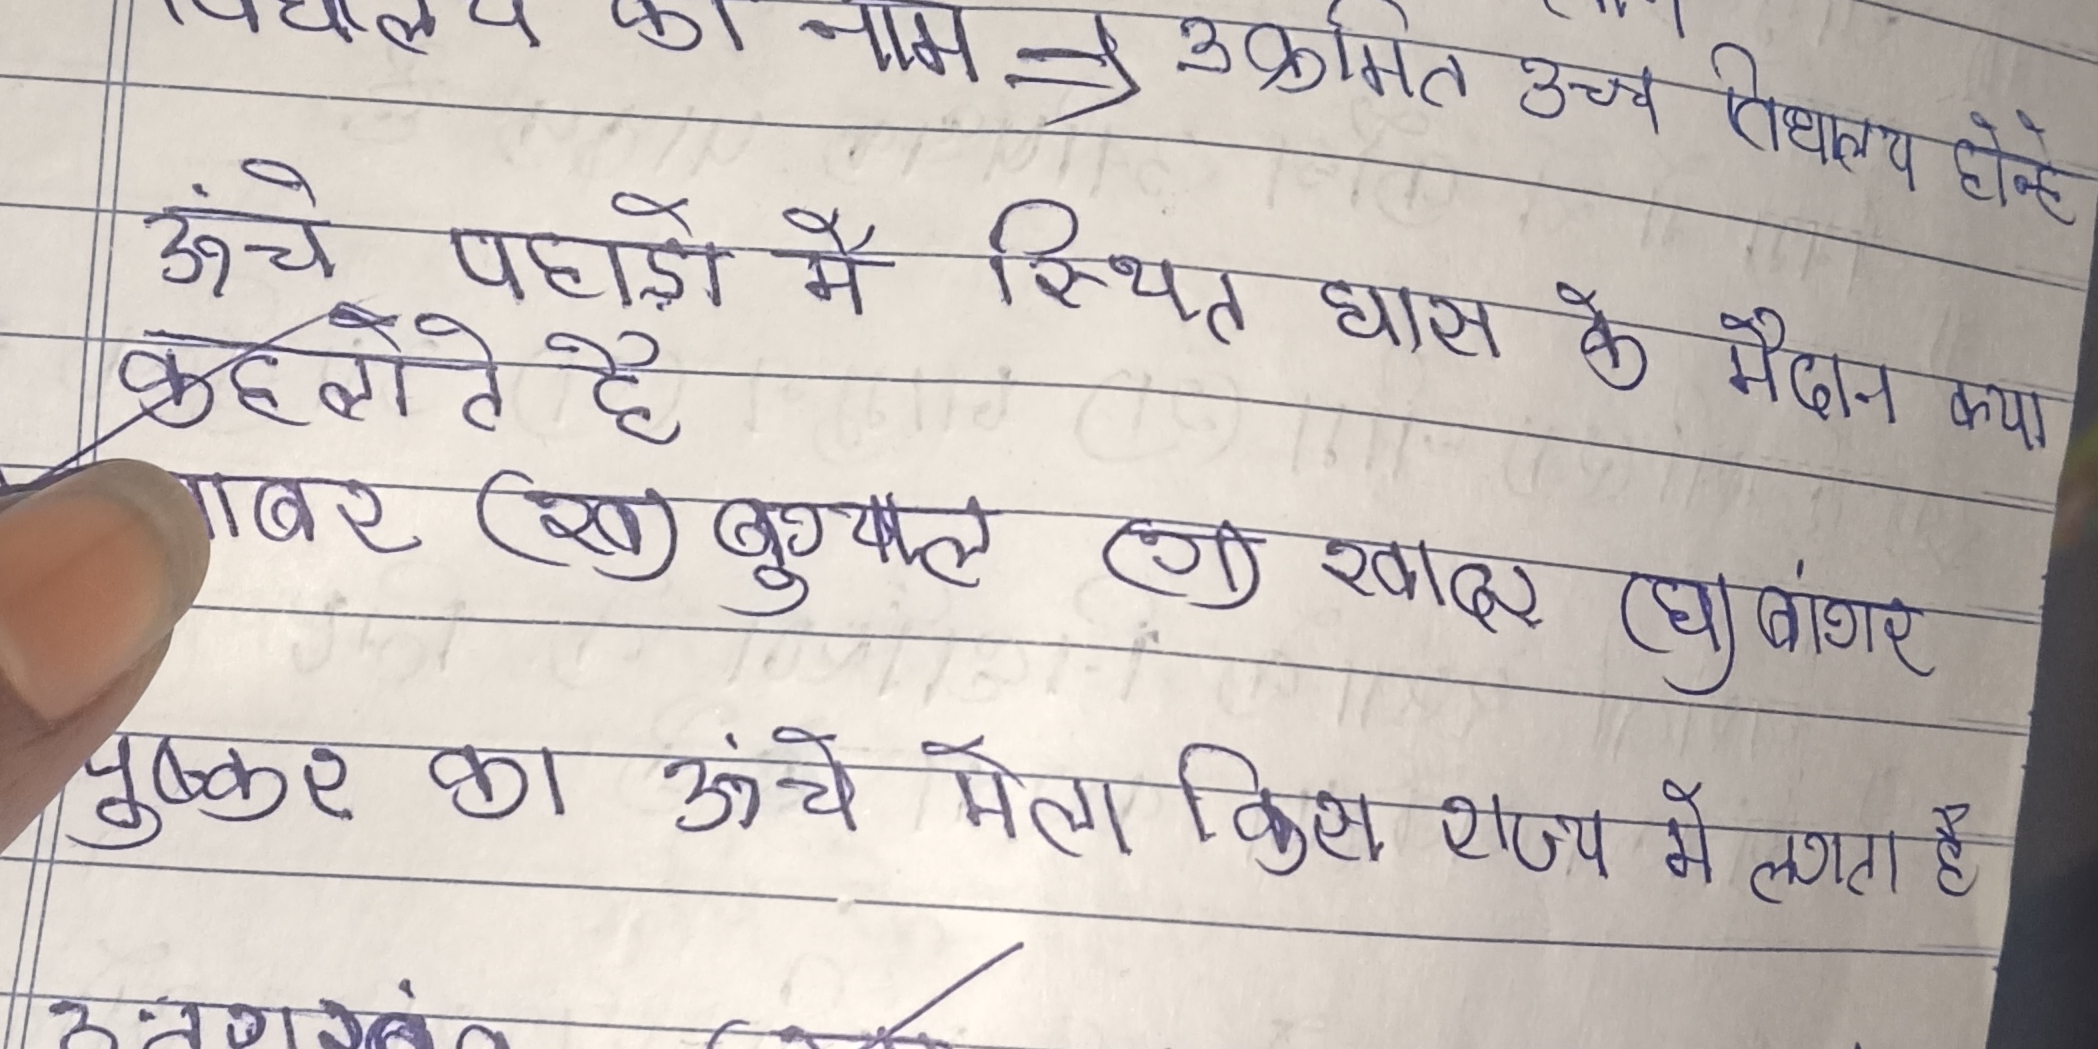 विधालय का नाम ⇒ उक्रमित उच्च विधालय होन्हे
ऊंचे पहाड़ो मैं स्थित घास के मैदान क्या
कहलाेते है
ाबर (ख) बुग्याल (ग) खादर (घ) बांगर
पुष्कर का ऊंचे मेला किस राज्य मे लगता है
उत्तराखंड